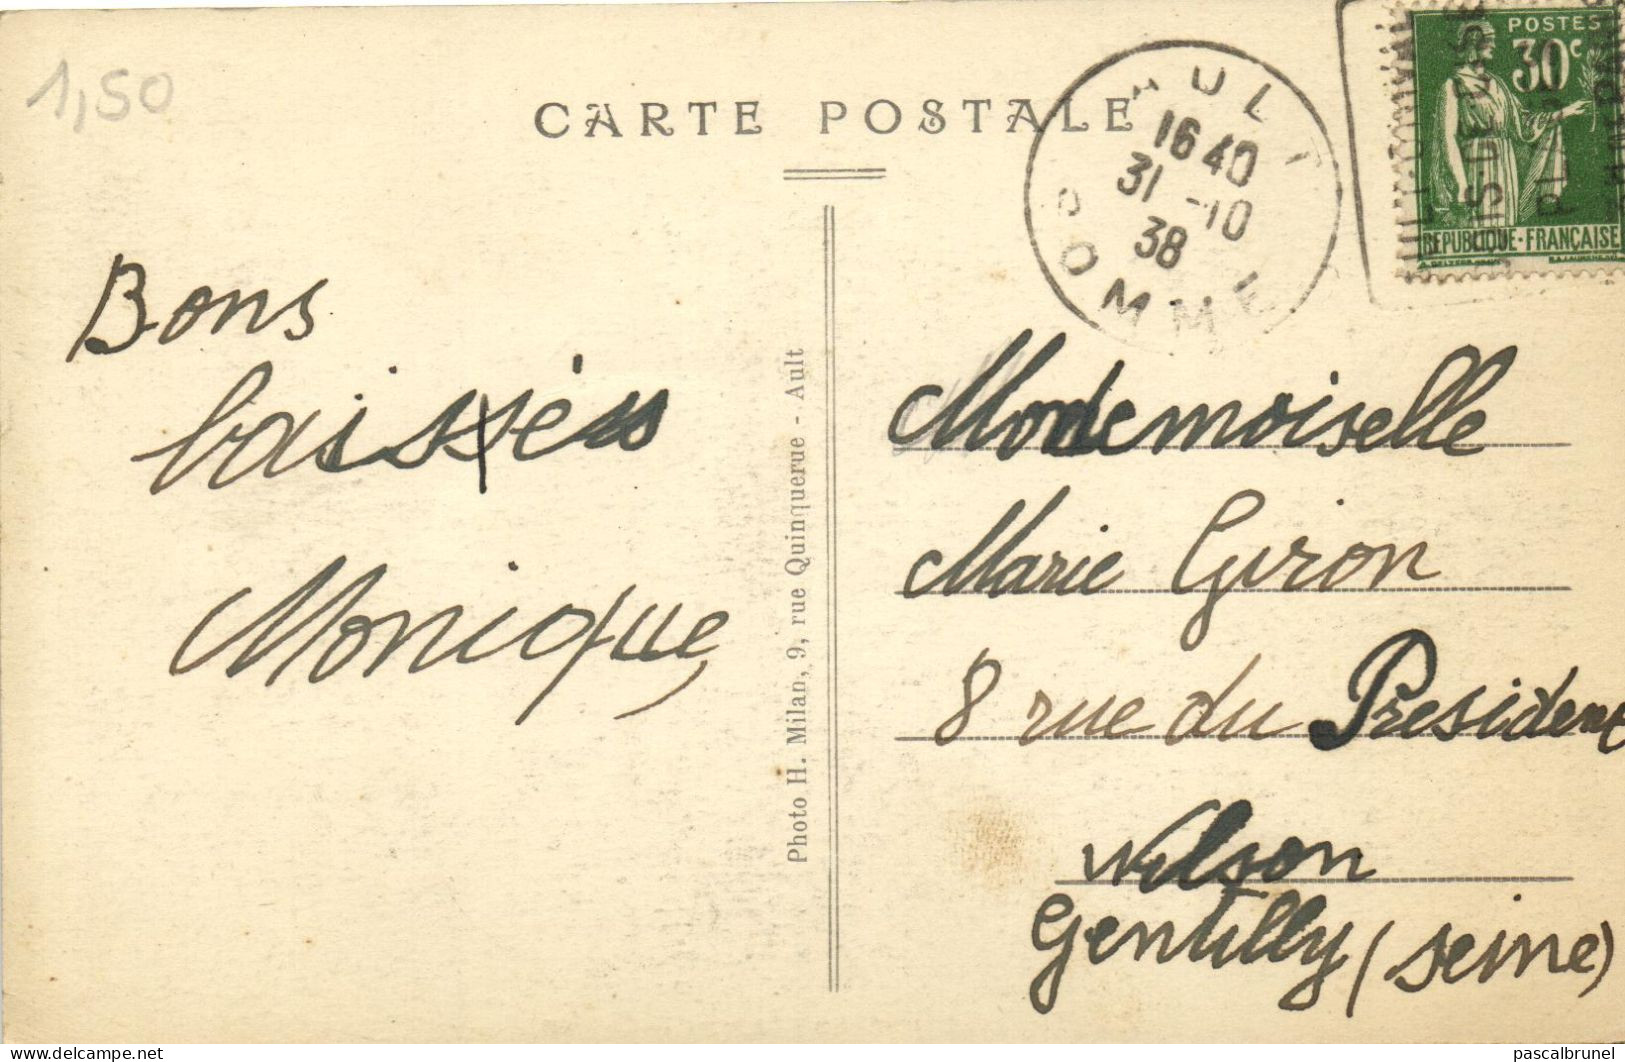 1,50
CARTE POSTALE
AULT
16 40
31 -10
38
SOMME
POSTES
30c
REPUBLIQUE-FRANÇAISE
Bons
baisses
Monique
Photo H. Milan, 9, rue Quinquerue - Ault
Mademoiselle
Marie Giron
8 rue du President
Wilson
Gentilly (Seine)
Delcampe.net
pascalbrunel